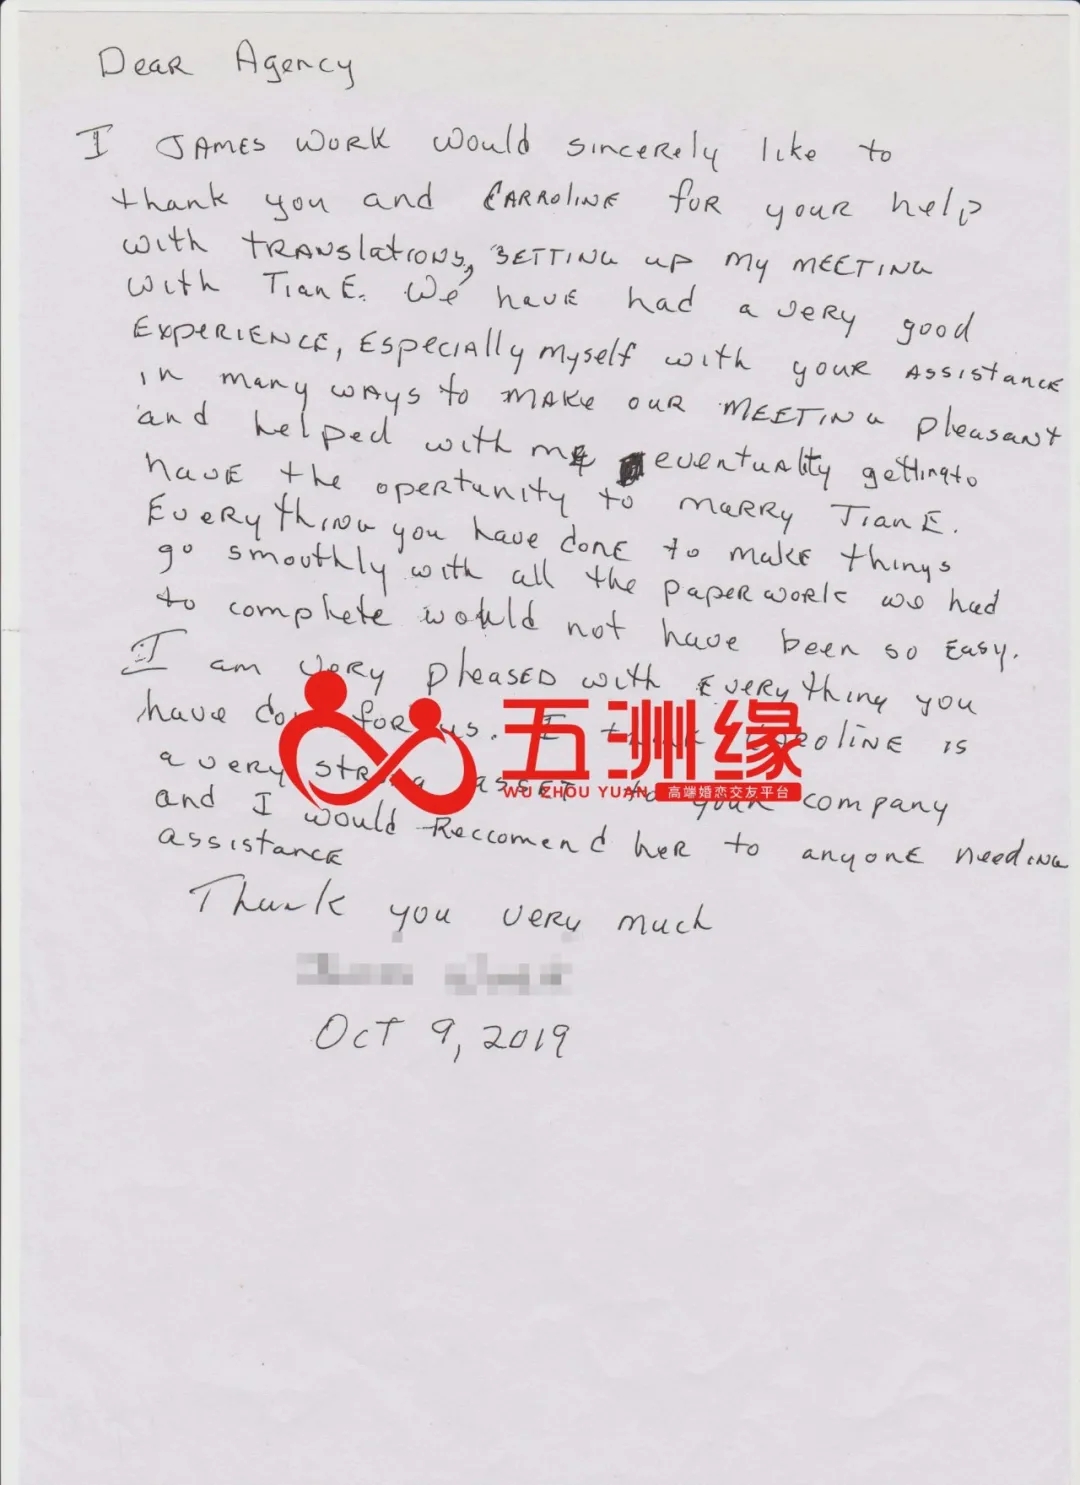 Dear Agency
I JAMES WORK would sincerely like to
thank you and CARROLINE for your help
with TRANslations, SETTING up my MEETING
with TianE. We have had a very good
EXPERIENCE, Especially myself with your Assistance
in many ways to MAKE our MEETING pleasant
and helped with me eventuality getting to
have the opertunity to marry TianE.
Everything you have done to make things
go smouthly with all the paperwork we had
to complete would not have been so Easy.
I am very pleased with Everything you
have for us. I CaroliNE is
a very asset to your company
and I would Reccomend her to anyone needing
assistance
Thank you very much
Oct 9, 2019
五洲缘
WU ZHOU YUAN 高端婚恋交友平台